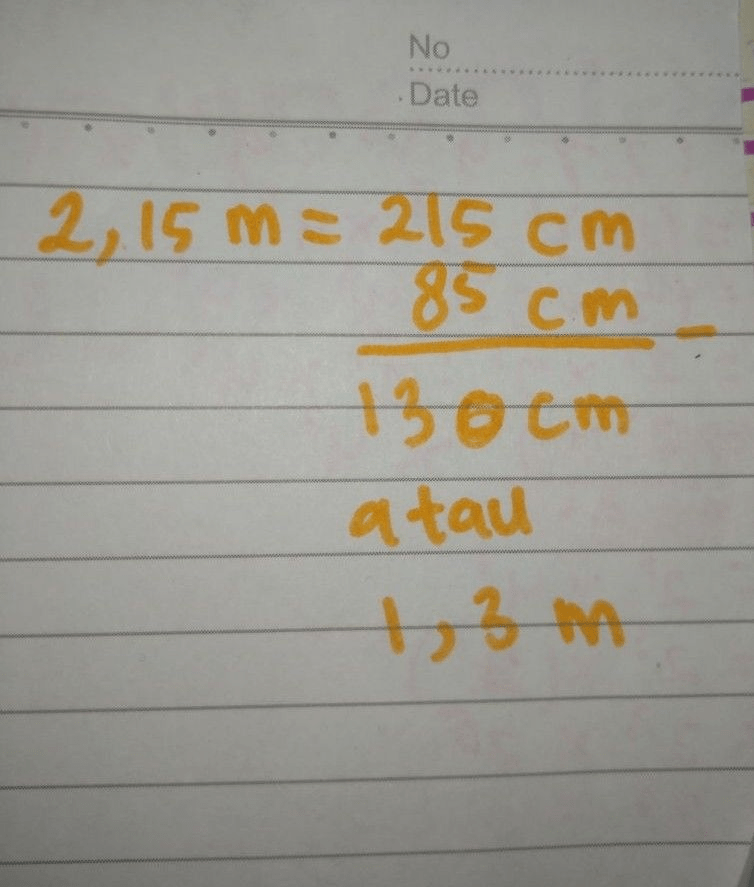 No
Date
2,15 m = 215 cm
85 cm -
130 cm
atau
1,3 m